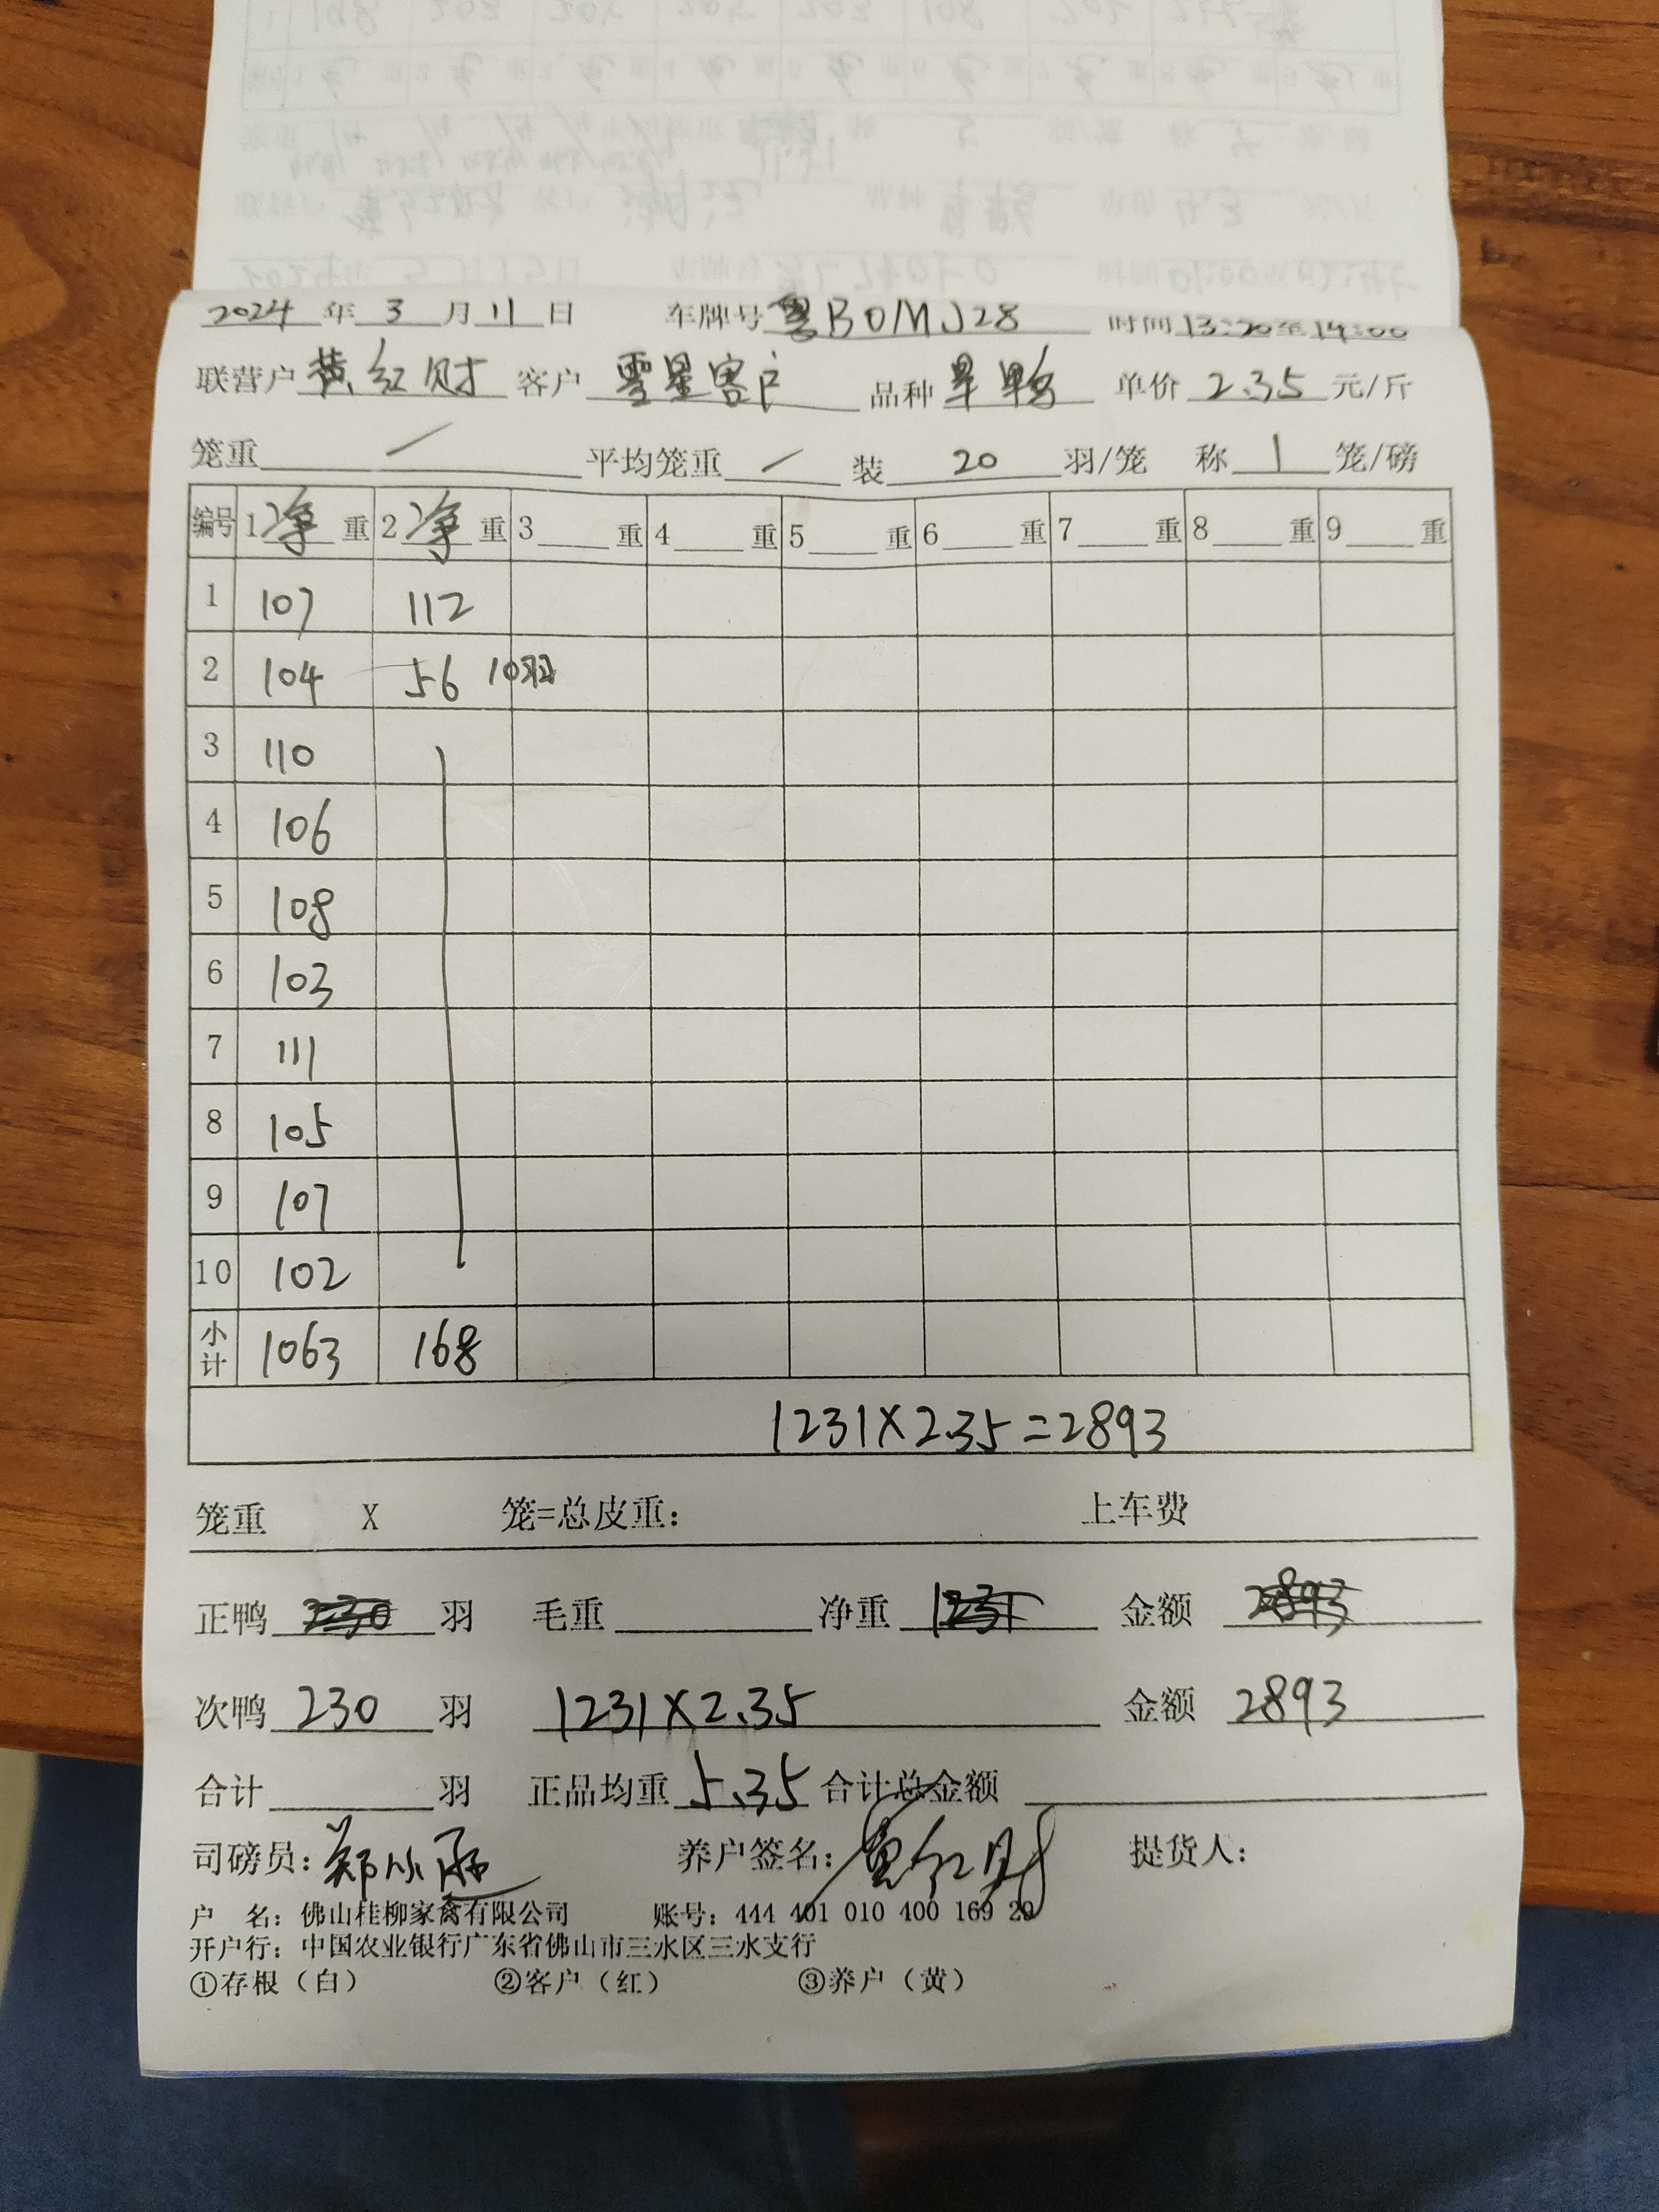 2024 年 3 月 11 日 车牌号 粤B0MJ28 时间 13:20至14:00
联营户 黄红财 客户 零星客户 品种 旱鸭 单价 2.35 元/斤
笼重 / 平均笼重 / 装 20 羽/笼 称 1 笼/磅
编号 1 净 重 2 净 重 3 重 4 重 5 重 6 重 7 重 8 重 9 重
1 107 112
2 104 56 10羽
3 110
4 106
5 108
6 103
7 111
8 105
9 107
10 102
小计 1063 168
1231X2.35=2893
笼重 X 笼=总皮重: 上车费
正鸭 230 羽 毛重 净重 1231 金额 2893
次鸭 230 羽 1231X2.35 金额 2893
合计 羽 正品均重 5.35 合计总金额
司磅员: 养户签名: 黄红财 提货人:
户 名: 佛山桂柳家禽有限公司 账号: 444 401 010 400 169 20
开户行: 中国农业银行广东省佛山市三水区三水支行
①存根（白） ②客户（红） ③养户（黄）